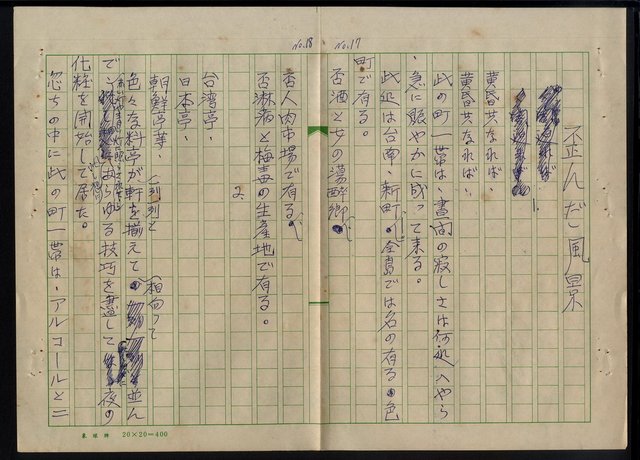 No.17
歪んだ風景
1.
黄昏共なれば、
黄昏共なれば、
此の町一帯は、晝間の寂しさは何処へやら
、急に賑やかに成って来る。
此処は台南、新町。全島では名の有る色
町で有る。
否酒と女の陶醉郷
No.18
否人肉市場で有る。
否淋病と梅毒の生産地で有る。
2.
台湾亭、
日本亭、
朝鮮亭等、
色々な料亭が軒を揃えて 相向って 並ん
で あらゆる技巧を盡して 夜の
化粧を開始して居た。
忽ちの中に此の町一帯は、アルコールと二
20×20=400